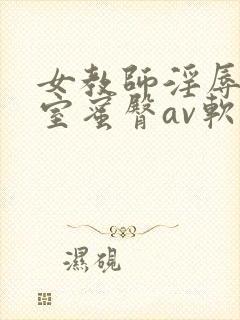 女教師淫辱
室蜜臀av軟
濕硯